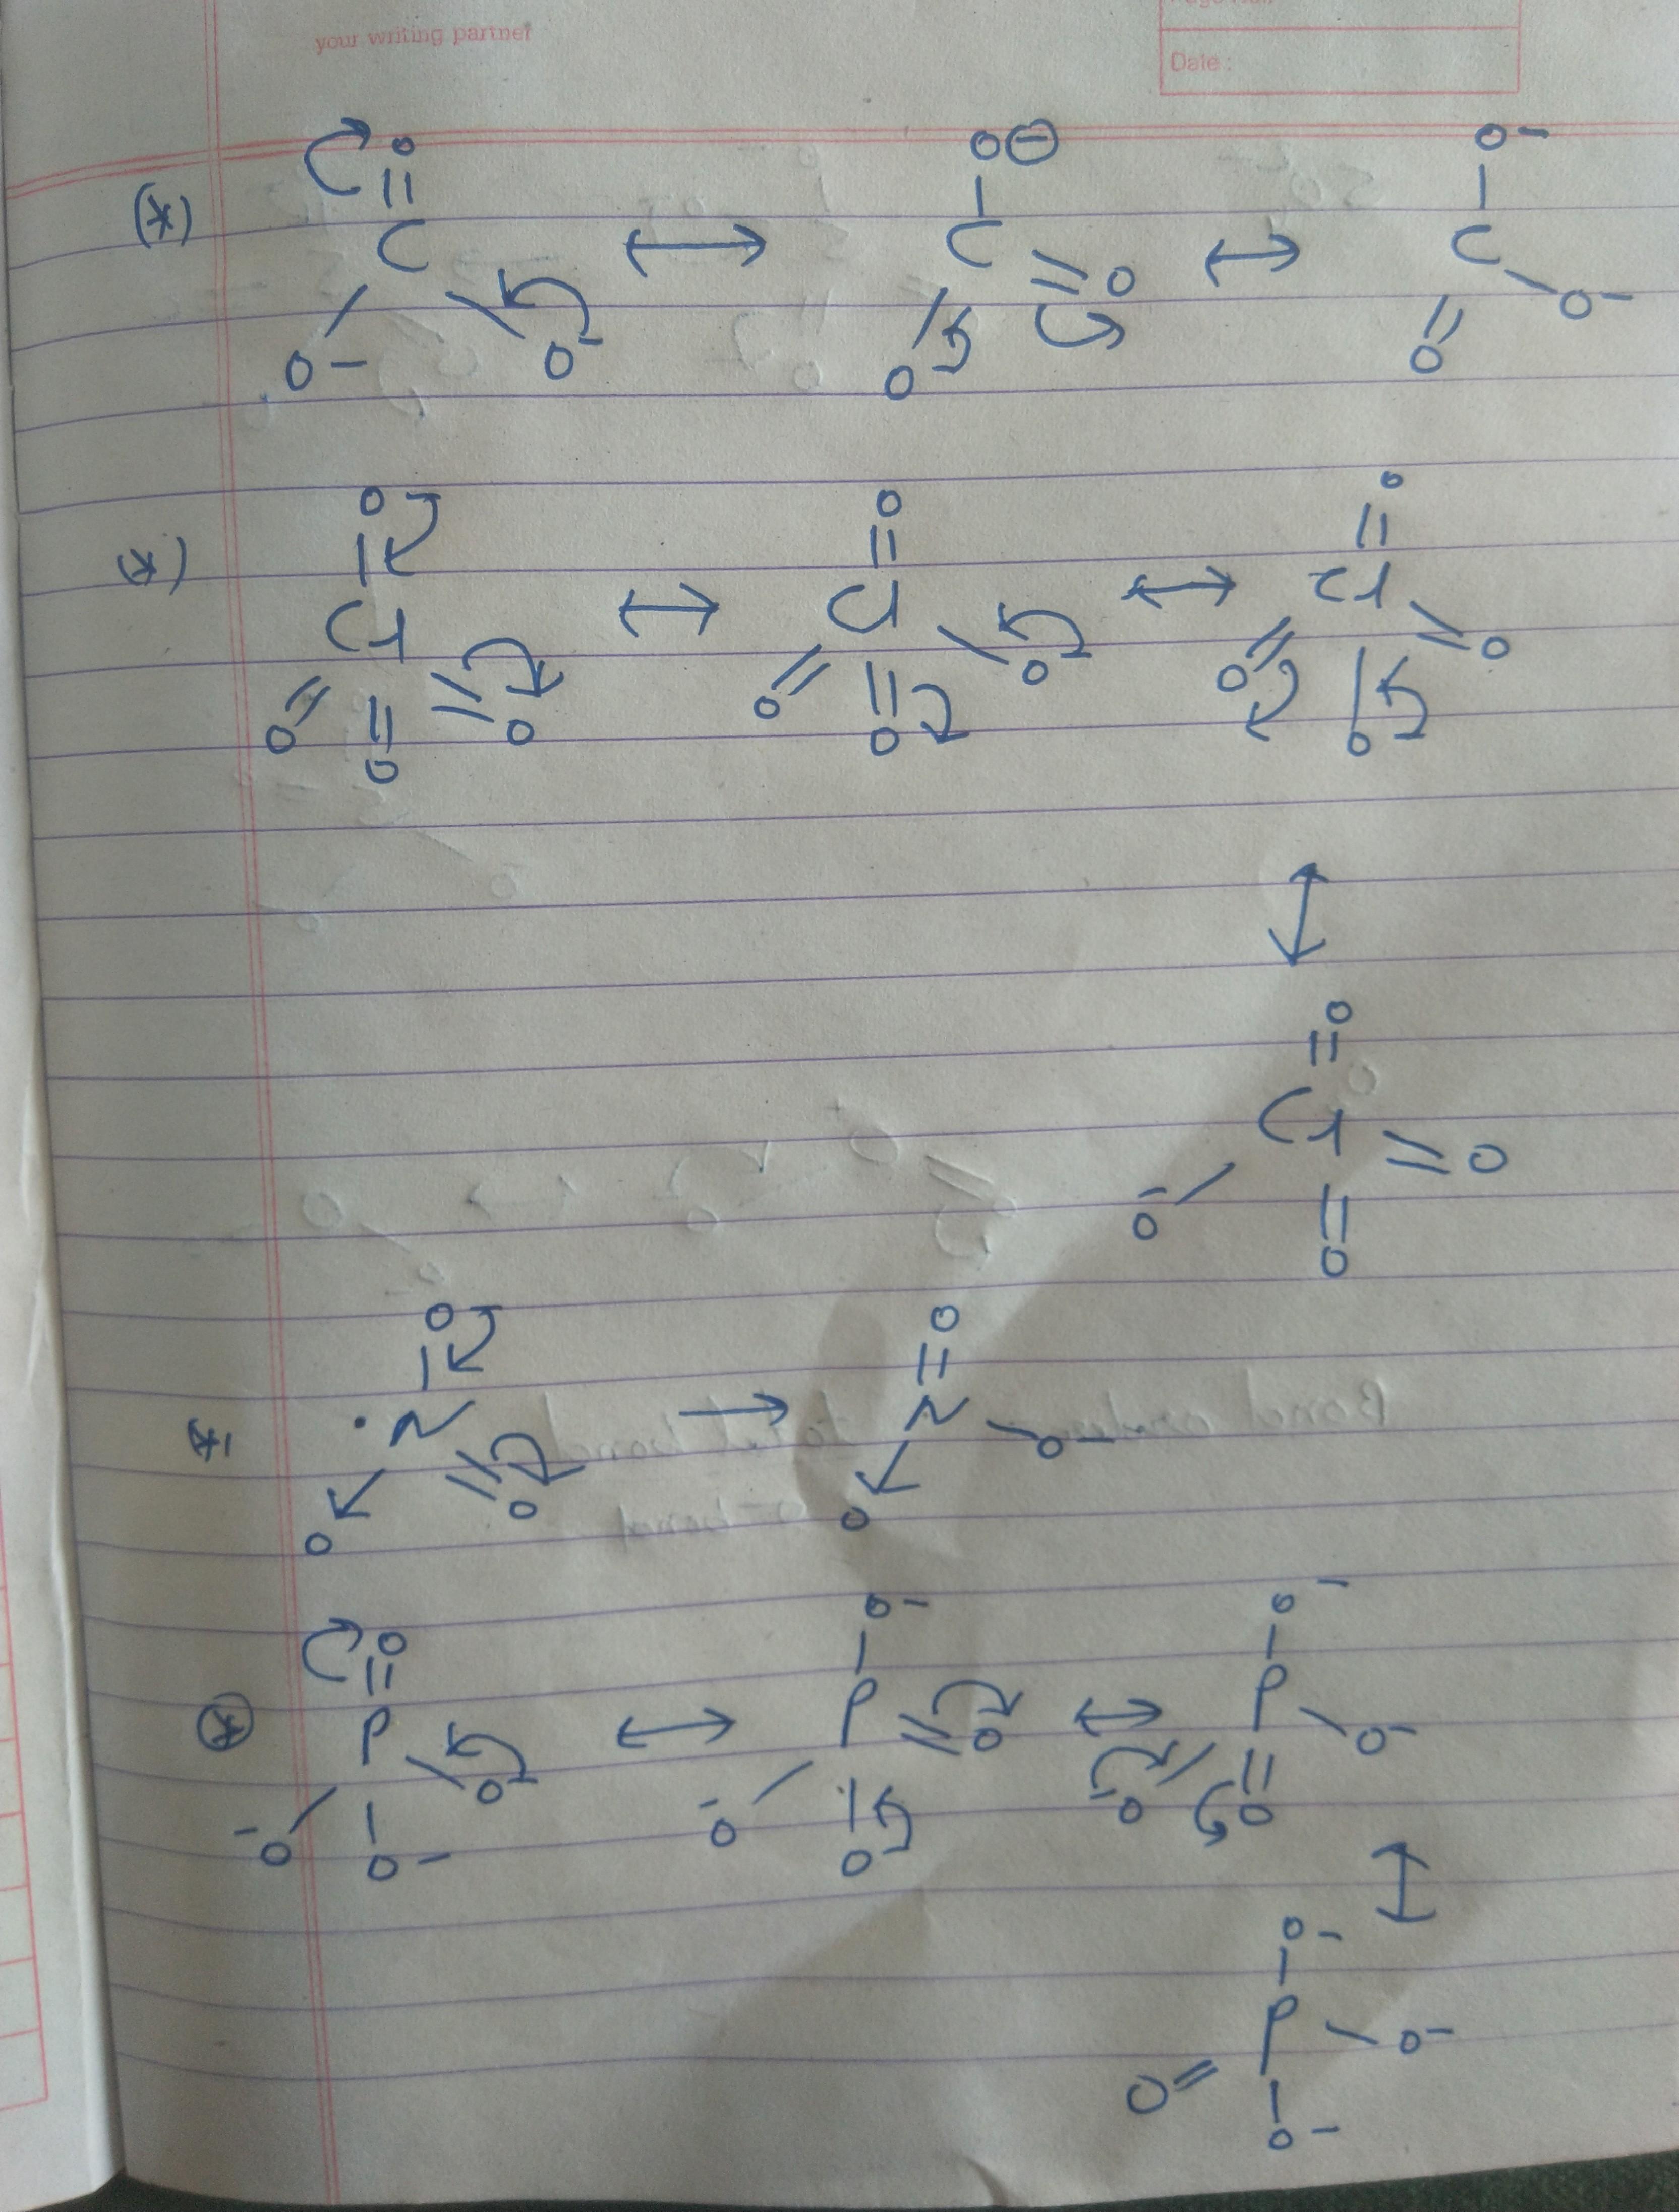 your writing partner
Date :
(*) O || C O- O- ↔ O⊖ | C = O O- ↔ O- | C O- || O
*) O- | Cl = O || O || O ↔ O || Cl O- || O || O ↔ O || Cl = O O- || O
↕
O || Cl = O || O -O
* O- | N = O → O → O || N O- → O
(*) O || P O- O- -O ↔ O- | P = O O- -O ↔ O- | P O- || O -O
↕
O- | P - O- | O- O =